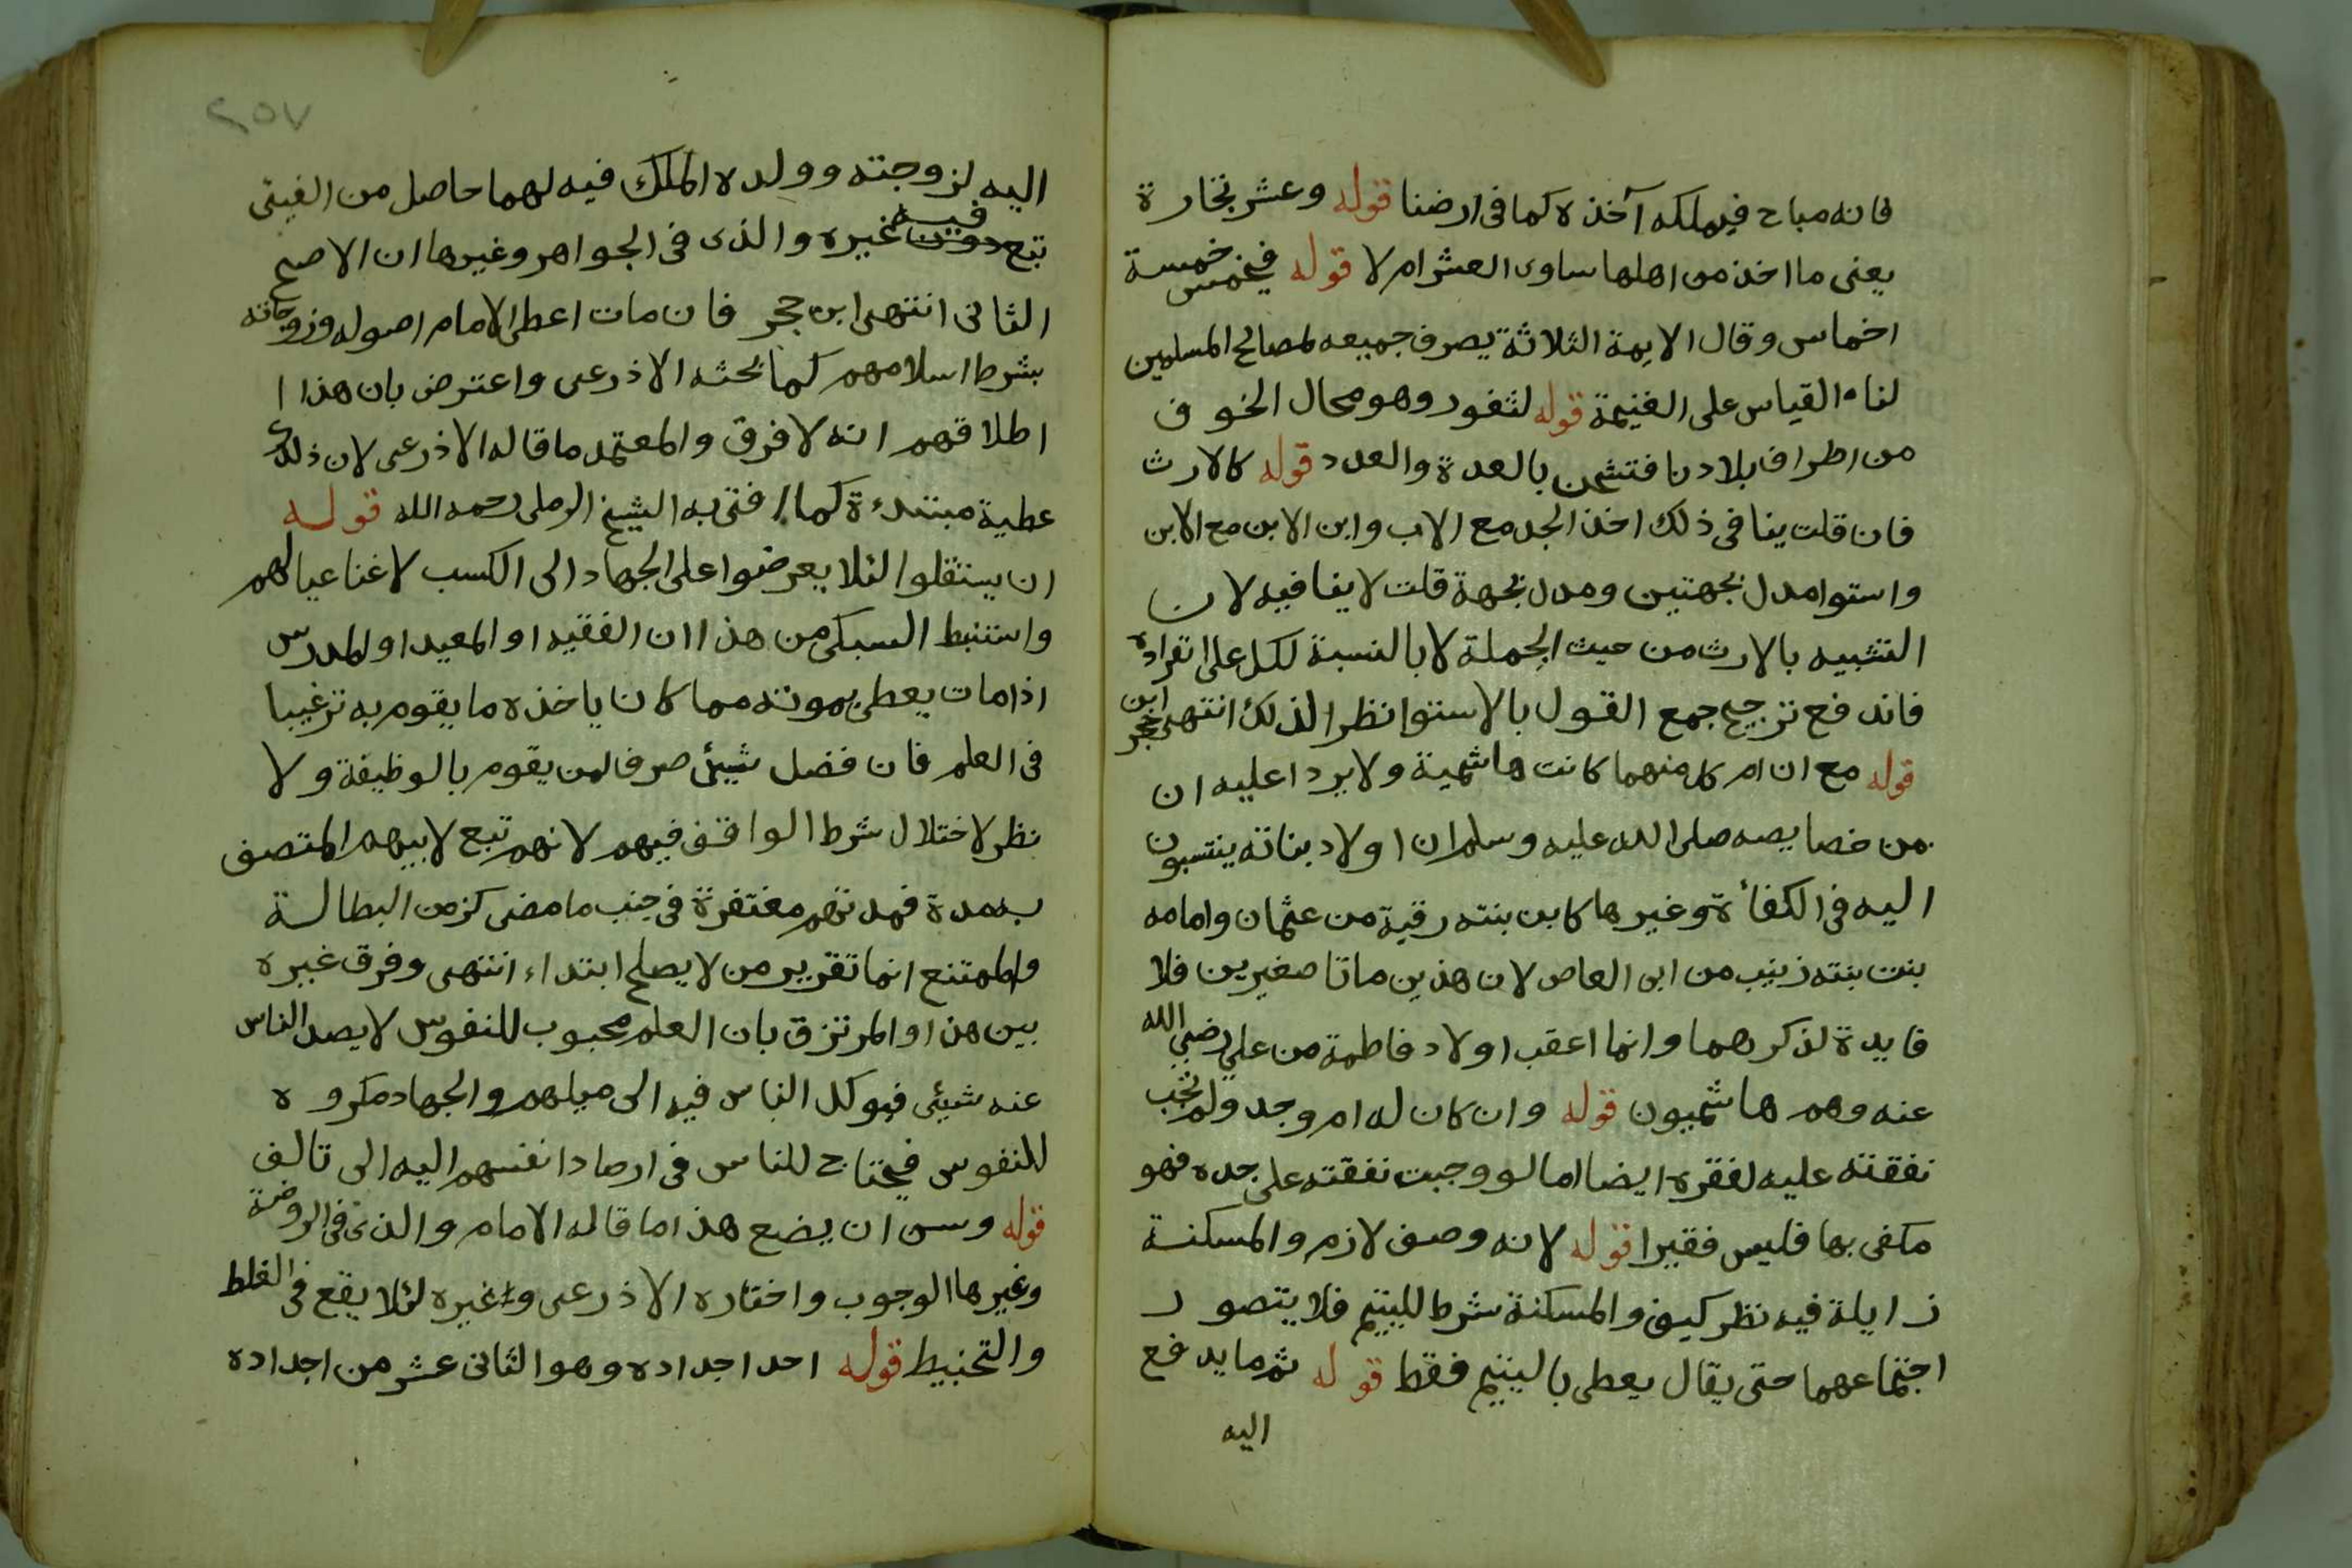 فانه مباح فيملكه آخذه كما فى ارضنا قوله وعشر تجارة
يعنى ما اخذ من اهلها ساوى العشر ام لا قوله فيخمس خمسة
اخماس وقال الايمة الثلاثة يصرف جميعه لمصالح المسلمين
لنا القياس على الغنيمة قوله لثغور وهو محال الخوف
من اطراف بلادنا فتشحن بالعدة والعدد قوله كالارث
فان قلت ينافى ذلك اخذ الجد مع الاب وابن الابن مع الابن
واستوا مدل بجهتين ومدل بجهة قلت لا ينافيه لان
التشبيه بالارث من حيث الجملة لا بالنسبة لكل على انفراده
فاندفع ترجيح جمع القول بالاستوا نظرا لذلك انتهى ابن حجر
قوله مع ان ام كل منهما كانت هاشمية ولا يرد عليه ان
من خصايصه صلى الله عليه وسلم ان اولاد بناته ينتسبون
اليه فى الكفأة وغيرها كابن بنته رقية من عثمان وامامه
بنت بنته زينب من ابى العاص لان هذين ماتا صغيرين فلا
فايدة لذكرهما وانما اعقب اولاد فاطمة من علي رضي الله
عنه وهم هاشميون قوله وان كان له ام وجد ولم تجب
نفقته عليه لفقره ايضا اما لو وجبت نفقته على جده فهو
مكفى بها فليس فقيرا قوله لانه وصف لازم والمسكنة
زايلة فيه نظر كيف والمسكنة شرط لليتيم فلا يتصور
اجتماعهما حتى يقال يعطى باليتيم فقط قوله ثم ما يدفع
اليه
٢٥٧
اليه لزوجته وولده الملك فيه لهما حاصل من الفيئ
تبع فيه غيره والذى فى الجواهر وغيرها ان الاصح
الثانى انتهى ابن حجر فان مات اعطى الامام اصوله وزوجاته
بشرط اسلامهم كما بحثه الاذرعى واعترض بان هذا ا
اطلاقهم انه لا فرق والمعتمد ما قاله الاذرعى لان ذلك
عطية مبتدءة كما افتى به الشيخ الرملى رحمه الله قوله
ان يستقلوا لئلا يعرضوا على الجهاد الى الكسب لاغنا عيالهم
واستنبط السبكى من هذا ان الفقيه او المعيد او المدرس
اذا مات يعطى مونه مما كان ياخذه ما يقوم به ترغيبا
فى العلم فان فضل شيئ صرف لمن يقوم بالوظيفة ولا
نظر لاختلال شرط الواقف فيهم لانهم تبع لابيهم المتصف
به مدة فمدتهم مغتفرة فى جنب ما مضى كزمن البطالة
والممتنع انما تقرير من لا يصلح ابتداء انتهى وفرق غيره
بين هذا والمرتزق بان العلم محبوب للنفوس لا يصد الناس
عنه شيئى فيوكل الناس فيه الى ميلهم والجهاد مكروه
للنفوس فيحتاج للناس فى ارصاد انفسهم اليه الى تالف
قوله وسن ان يضع هذا ما قاله الامام والذى فى الروضة
وغيرها الوجوب واختاره الاذرعى وغيره لئلا يقع فى الغلط
والتخبيط قوله احد اجداده وهو الثانى عشر من اجداده